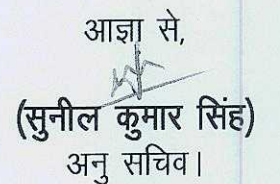 आज्ञा से,
(सुनील कुमार सिंह)
अनु सचिव।